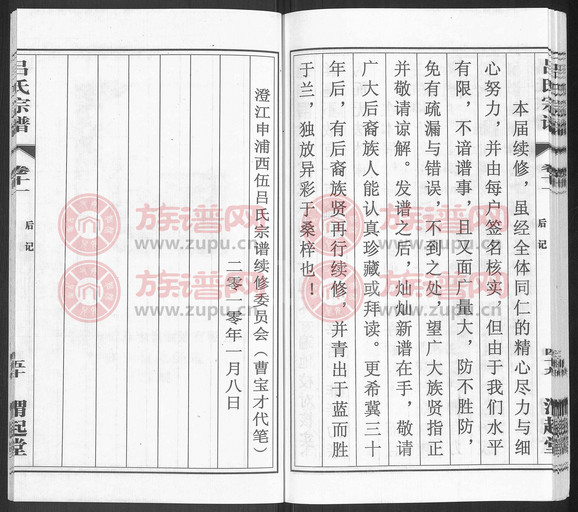 本届续修，虽经全体同仁的精心尽力与细
心努力，并由每户签名核实，但由于我们水平
有限，不谙谱事，且又面广量大，防不胜防，
免有疏漏与错误，不到之处，望广大族贤指正
并敬请谅解。发谱之后，灿灿新谱在手，敬请
广大后裔族人能认真珍藏或拜读。更希冀三十
年后，有后裔族贤再行续修，并青出于蓝而胜
于兰，独放异彩于桑梓也！
澄江申浦西伍吕氏宗谱续修委员会（曹宝才代笔）
二零一零年一月八日
吕氏宗谱
卷十一
后记
五十
渭起堂
吕氏宗谱
卷十一
后记
四十九
渭起堂
族谱网
www.zupu.cn
族谱网
www.zupu.cn
族谱网
www.zupu.cn
族谱网
www.zupu.cn